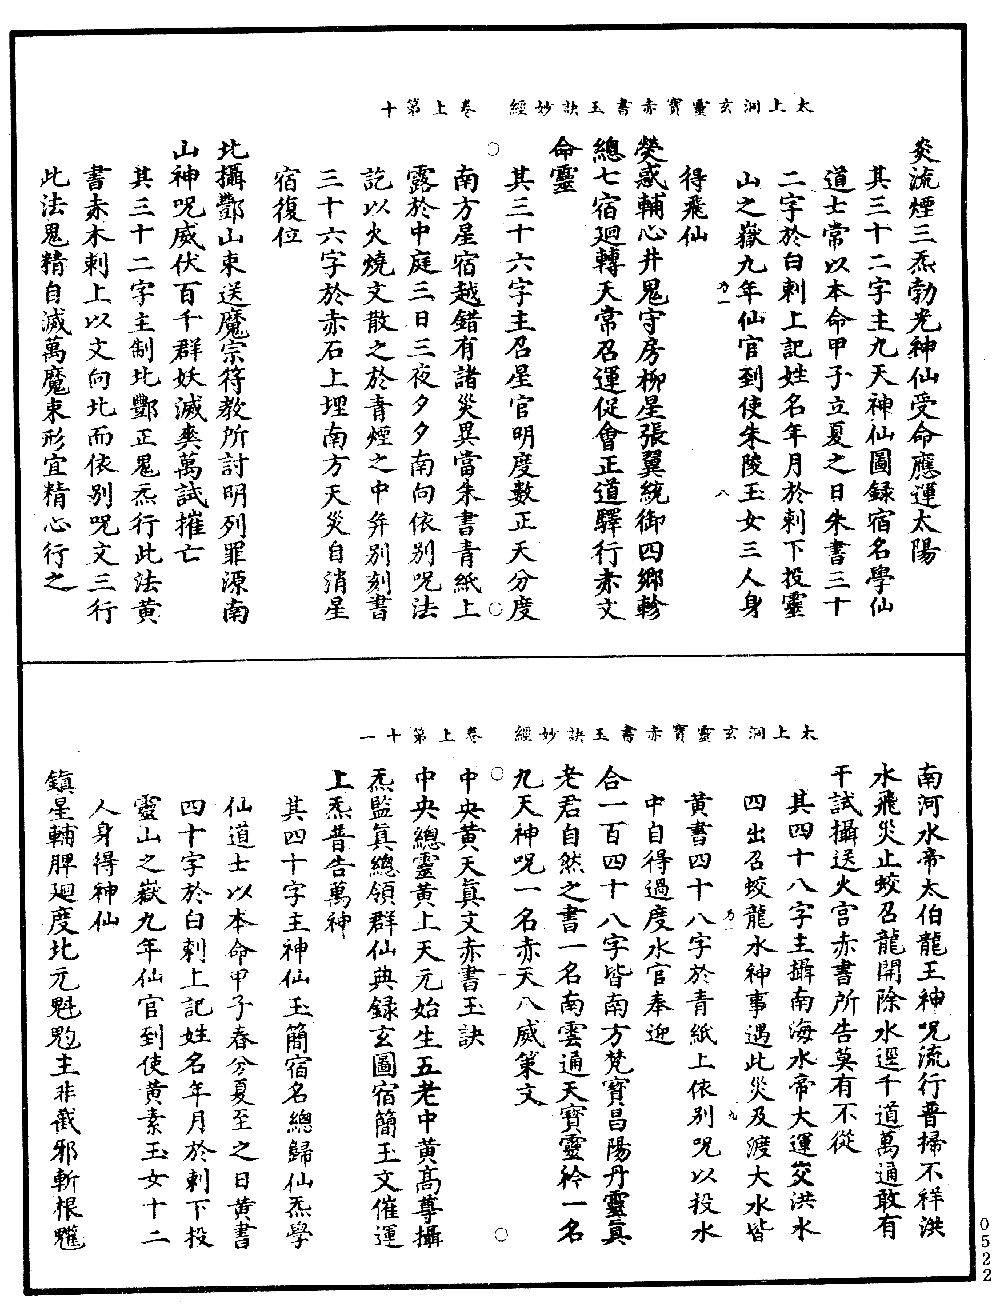 太上洞玄靈寶赤書玉訣妙經　卷上第十
炎流煙三炁勃光神仙受命應運太陽
其三十二字主九天神仙圖錄宿名學仙
道士常以本命甲子立夏之日朱書三十
二字於白刺上記姓名年月於刺下投靈
山之嶽九年仙官到使朱陵玉女三人身
得飛仙
熒惑輔心井鬼守房柳星張翼統御四鄉軫
總七宿迴轉天常召運促會正道驛行赤文
命靈
其三十六字主召星官明度數正天分度
南方星宿越錯有諸災異當朱書青紙上
露於中庭三日三夜夕夕南向依別呪法
訖以火燒文散之於青煙之中并別刻書
三十六字於赤石上埋南方天災自消星
宿復位
北攝酆山束送魔宗符教所討明列罪源南
山神呪威伏百千群妖滅爽萬試摧亡
其三十二字主制北酆正鬼炁行此法黃
書赤木刺上以文向北而依別呪文三行
此法鬼精自滅萬魔束形宜精心行之
太上洞玄靈寶赤書玉訣妙經　卷上第十一
南河水帝太伯龍王神呪流行普掃不祥洪
水飛災止蛟召龍開除水逕千道萬通敢有
干試攝送火宮赤書所告莫有不從
其四十八字主攝南海水帝大運交洪水
四出召蛟龍水神事遇此災及渡大水皆
黃書四十八字於青紙上依別呪以投水
中自得過度水官奉迎
合一百四十八字皆南方梵寶昌陽丹靈真
老君自然之書一名南雲通天寶靈衿一名
九天神呪一名赤天八威策文
中央黃天真文赤書玉訣
中央總靈黃上天元始生五老中黃高尊攝
炁監真總領群仙典錄玄圖宿簡玉文催運
上炁普告萬神
其四十字主神仙玉簡宿名總歸仙炁學
仙道士以本命甲子春分夏至之日黃書
四十字於白刺上記姓名年月於刺下投
靈山之嶽九年仙官到使黃素玉女十二
人身得神仙
鎮星輔脾迴度北元魁魒主非截邪斬根魓
0522